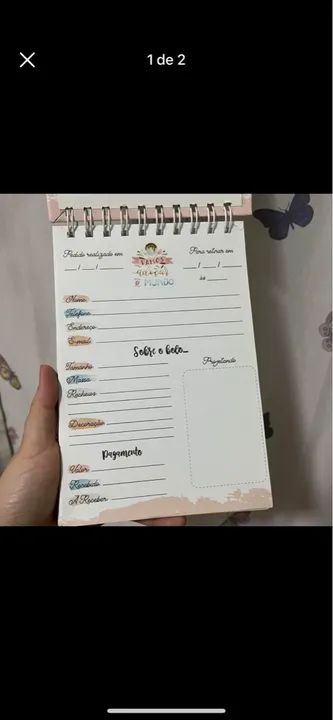 1 de 2
Pedido realizado em
Para retirar em
__/__/__
__/__/__
às ____
VAMOS
adoçar
o MUNDO
Nome
Telefone
Endereço
E-mail
Sobre o bolo...
Tamanho
Massa
Recheios
Projetando
Decoração
Pagamento
Valor
Recebido
A Receber